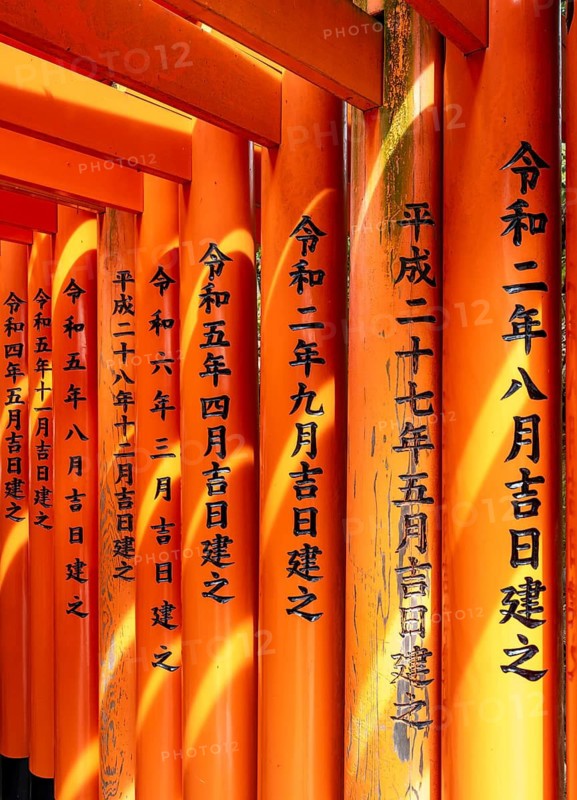 令和二年八月吉日建之
平成二十七年五月吉日建之
令和二年九月吉日建之
令和五年四月吉日建之
令和六年三月吉日建之
平成二十八年十二月吉日建之
令和五年八月吉日建之
令和五年十一月吉日建之
令和四年五月吉日建之
PHOTO12